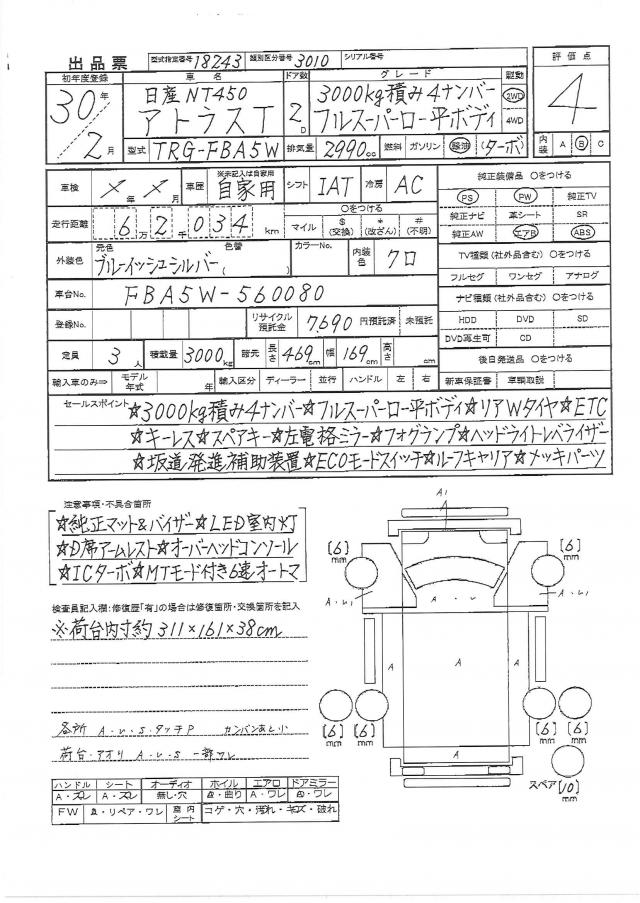 出品票 型式指定番号 18243 類別区分番号 3010 シリアル番号
初年度登録 車名 ドア数 グレード 駆動 評価点
30年 2月 日産NT450 アトラスT 2D 3000kg積み4ナンバー フルスーパーロー平ボディ 2WD 4WD 4
型式 TRG-FBA5W 排気量 2990cc 燃料 ガソリン 軽油 (ターボ) 内装 A B C
車検 ×年×月 車歴 ※未記入は自家用 自家用 シフト IAT 冷房 AC 純正装備品 〇をつける
PS PW 純正TV
走行距離 6万2千034km 〇をつける マイル $(交換) *(改ざん) #(不明) 純正ナビ 革シート SR
純正AW エアB ABS
外装色 元色 ブルーイッシュシルバー 色替 ( ) カラーNo. 内装色 クロ TV種類(社外品含む)〇をつける
フルセグ ワンセグ アナログ
車台No. FBA5W-560080 ナビ種類(社外品含む)〇をつける
登録No. リサイクル預託金 7,690円預託済 未預託 HDD DVD SD
DVD再生可 CD
定員 3人 積載量 3000kg 諸元 長さ 469cm 幅 169cm 高さ cm 後日発送品 〇をつける
輸入車のみ⇒ モデル年式 年 輸入区分 ディーラー 並行 ハンドル 左 右 新車保証書 車輌取説
セールスポイント ☆3000kg積み4ナンバー☆フルスーパーロー平ボディ☆リアWタイヤ☆ETC
☆キーレス☆スペアキー☆左電格ミラー☆フォグランプ☆ヘッドライトレベライザー
☆坂道発進補助装置☆ECOモードスイッチ☆ルーフキャリア☆メッキパーツ
注意事項・不具合箇所
☆純正マット&バイザー☆LED室内灯
☆D席アームレスト☆オーバーヘッドコンソール
☆ICターボ☆MTモード付き6速オートマ
検査員記入欄:修復歴「有」の場合は修復箇所・交換箇所を記入
※荷台内寸約311×161×38cm
各所 A・U・S・タッチP カンバンあと小
荷台・アオリ A・U・S 一部ワレ
ハンドル シート オーディオ ホイル エアロ ドアミラー
A・スレ A・スレ 無し・穴 A・曲り A・ワレ A・ワレ
FW A・リペア・ワレ 室内シート コゲ・穴・汚れ・キズ・破れ
A1
[6]mm [6]mm
A・U1 A・U1
A A・U A
[6]mm [6]mm [6]mm [6]mm
A・U
スペア [10]mm